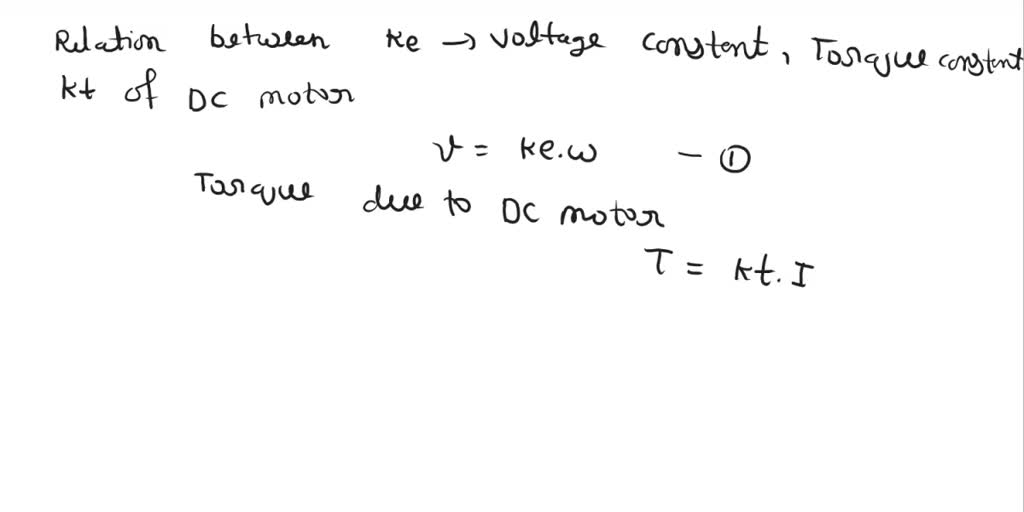 Relation between ke → voltage constent, Torque constent
kt of DC motor
v = ke.ω - ①
Torque due to DC motor
T = kt.I